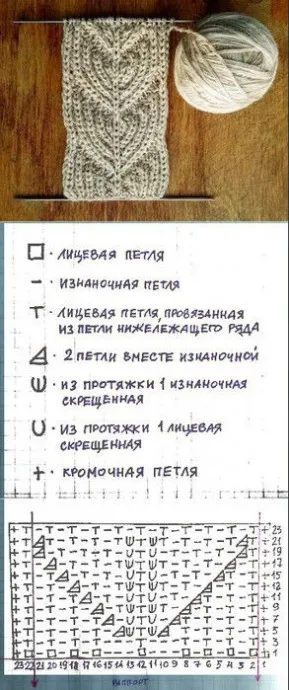 □ · ЛИЦЕВАЯ ПЕТЛЯ
− · ИЗНАНОЧНАЯ ПЕТЛЯ
Т · ЛИЦЕВАЯ ПЕТЛЯ, ПРОВЯЗАННАЯ
ИЗ ПЕТЛИ НИЖЕЛЕЖАЩЕГО РЯДА
· 2 ПЕТЛИ ВМЕСТЕ ИЗНАНОЧНОЙ
· ИЗ ПРОТЯЖКИ 1 ИЗНАНОЧНАЯ
СКРЕЩЕННАЯ
∪ · ИЗ ПРОТЯЖКИ 1 ЛИЦЕВАЯ
СКРЕЩЕННАЯ
+ · КРОМОЧНАЯ ПЕТЛЯ
23
21
19
17
15
13
11
9
7
5
3
1
23 22 21 20 19 18 17 16 15 14 13 12 11 10 9 8 7 6 5 4 3 2 1
РАППОРТ